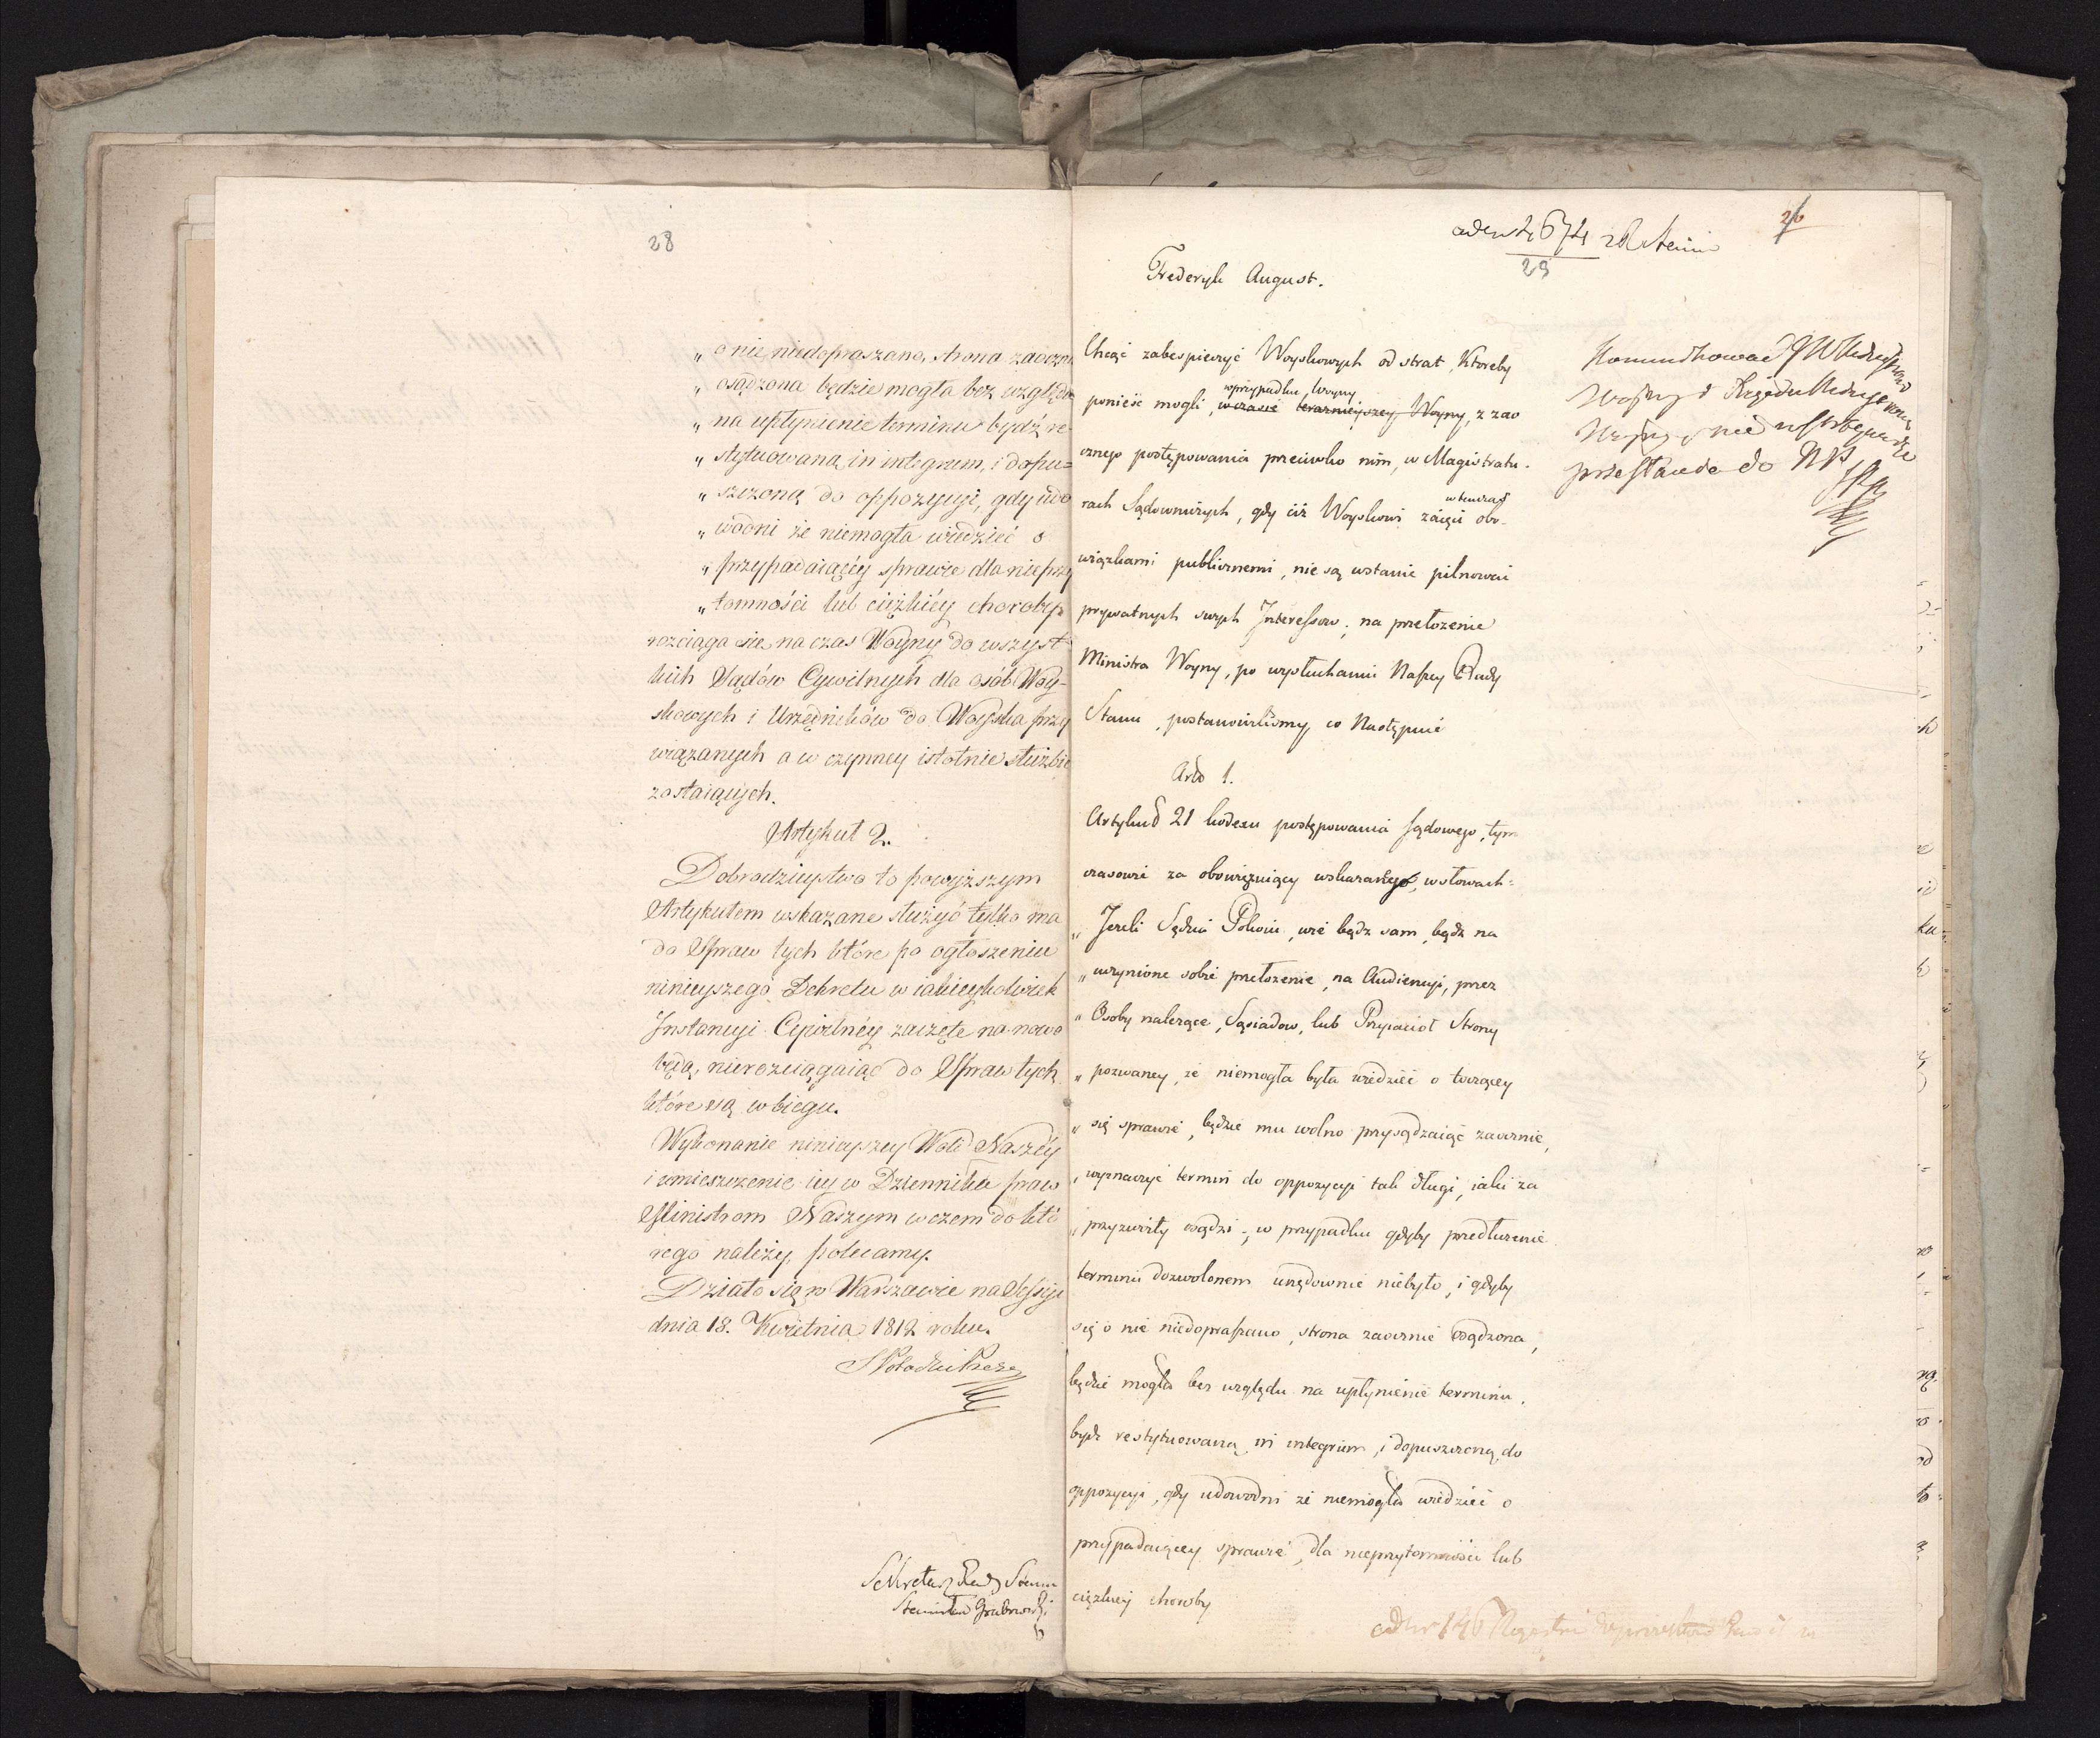 28
„ o nie niedopraszano, strona zaoczn
„ osądzona będzie mogła bez względu
„ na upłynienie terminu bydź re-
„ stytuowaną in integrum, i dopu=
„ szczoną do oppozycyi, gdy udo
„ wodni że niemogła wiedzieć o
„ przypadaiącéy sprawie dla nieprzy
„ tomności lub ciężkiéy choroby„
rozciąga się na czas Woyny do wszyst
kich Sądów Cywilnych dla osób Woy-
skowych i Urzędników do Woyska przy
wiązanych a w czynney istotnie służbie
zostaiących.
Artykuł 2.
Dobrodzieystwo to powyższym
Artykułem wskazane służyć tylko ma
do Spraw tych które po ogłoszeniu
ninieyszego Dekretu w iakieykolwiek
Instancyi Cywilnéy zaczęte na nowo
będą, nierozciągaiąc do Spraw tych
które są w biegu.
Wykonanie ninieyszey Woli Naszéy
i umieszczenie iéy w Dzienniku praw
Ministrom Naszym w czem do któ
rego należy, polecamy.
Działo się w Warszawie na Sessyi
dnia 18. Kwietnia 1812 roku.
Sekretarz Rady Stanu
Stanisław Grabowski
26
29
Frederyk August.
Chcąc zabespieczyć Woyskowych od strat, Ktoreby
w przypadku Woyny
ponieść mogli, w czasie terazniejszey Woyny, z zao
cznego postępowania przeciwko nim, w Magistratu-
wtenczas
rach Sądowniczych, gdy ciż Woyskowi zaięci obo-
wiązkami publicznemi, nie są wstanie pilnować
prywatnych swych Interessow; na przełożenie
Ministra Woyny, po wysłuchaniu Naszey Rady
Stanu, postanowiliśmy, co Następuie
Art 1.
Artykuł 21 kodexu postępowania sądowego, tym
czasowie za obowiązuiący wskazany, w słowach=
„ Jezeli Sędzia Pokoiu, wie bądz sam, bądz na
„ uczynione sobie przełożenie, na Audiencyi, przez
„ Osoby należące, Sąsiadow, lub Przyiacioł Strony
„ pozwaney, że niemogła była wiedzieć o toczącey
„ się sprawie, będzie mu wolno przysądzaiąc zaocznie,
„ wyznaczyć termin do oppozycyi tak długi, iaki za
„ przyzwoity osądzi; w przypadku gdyby przedłużenie
terminu dozwolonem urzędownie niebyło, i gdyby
się o nie niedopraszano, strona zaocznie osądzona,
będzie mogła bez względu na upłynienie terminu
bydz restytuowaną in integrum, i dopuszczoną do
oppozycyi, gdy udowodni ze niemogła wiedzieć o
przypadaiącey sprawie, dla nieprzytomności lub
ciężkiey choroby
przesłane do